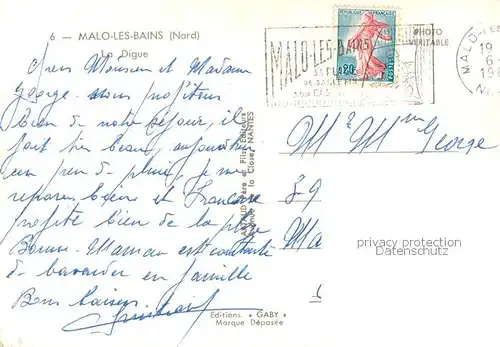 6 - MALO-LES-BAINS (Nord)
La Digue
Chers Monsieur et Madame
George nous profitons
bien de notre séjour, il
fait bien beau, aujourd'hui
un peu de pluie, je me
repose bien et Francoise
profite bien de la plage
Maman est contente
de bavarder en famille
Bons baisers
Editions « GABY »
Marque Déposée
ARTAUD Père et Fils Editeurs
de la Close, NANTES
MALO-LES-BAINS
SA PLAGE
DE SABLE FIN
SON CASINO
REPUBLIQUE FRANÇAISE
0,20
POSTES
PHOTO
VERITABLE
MALO-LES
19
6 -
19
Mr et Mme George
39
Ma
privacy protection
Datenschutz